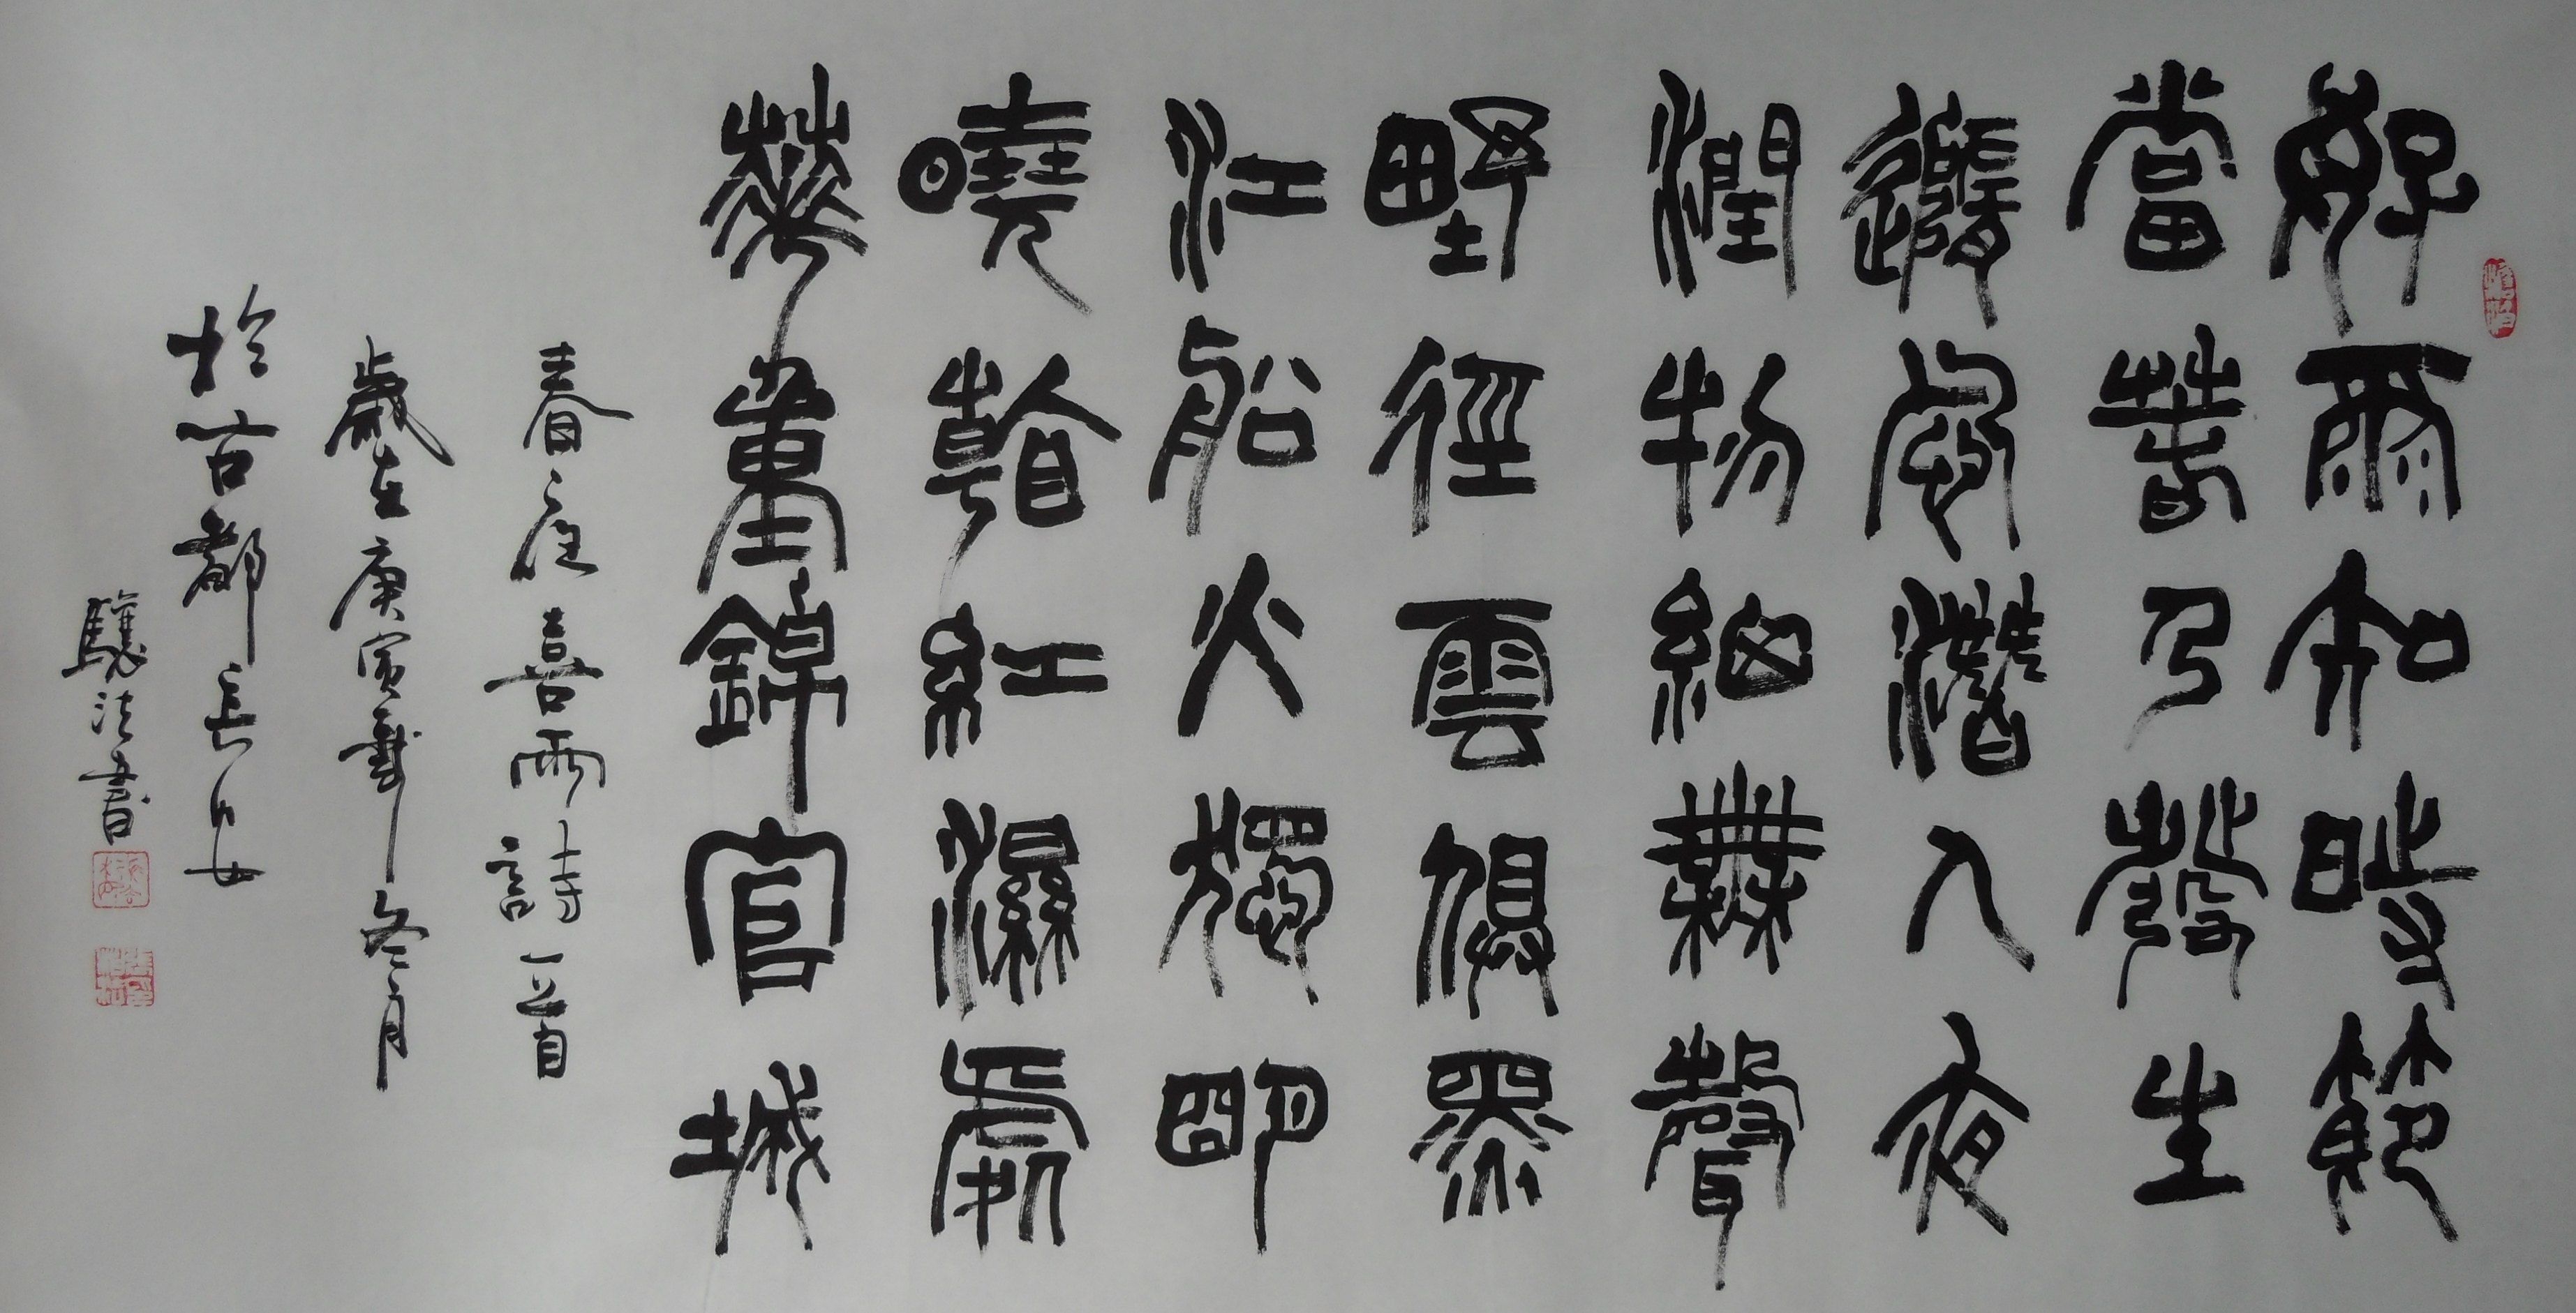 好雨知時節
當春乃發生
隨風潛入夜
潤物細無聲
野徑雲俱黑
江船火獨明
曉看紅濕處
華重錦官城
春夜喜雨詩一首
歲在庚寅年冬月
於古都長安
驤法書